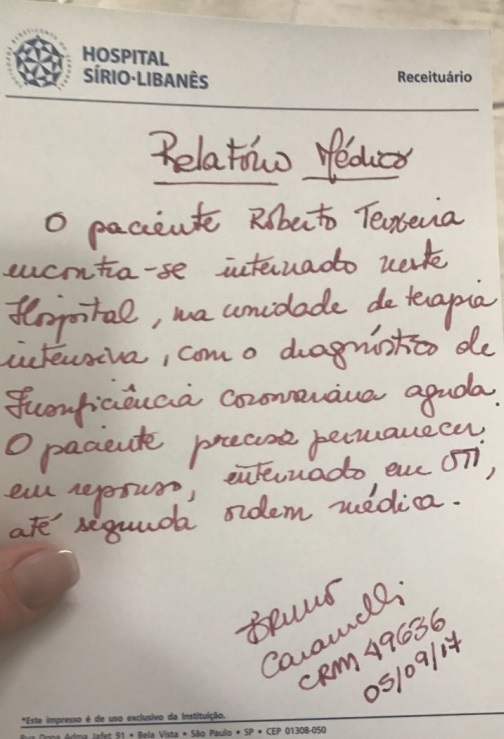 HOSPITAL
SÍRIO-LIBANÊS
Receituário
Relatório Médico
O paciente Roberto Teixeira
encontra-se internado neste
Hospital, na unidade de terapia
intensiva, com o diagnóstico de
Insuficiência coronariana aguda.
O paciente precisa permanecer
em repouso, internado, em UTI,
até segunda ordem médica.
Bruno
Caramelli
CRM 49636
05/09/17
*Este impresso é de uso exclusivo da Instituição.
Rua Dona Adma Jafet 91 • Bela Vista • São Paulo • SP • CEP 01308-050